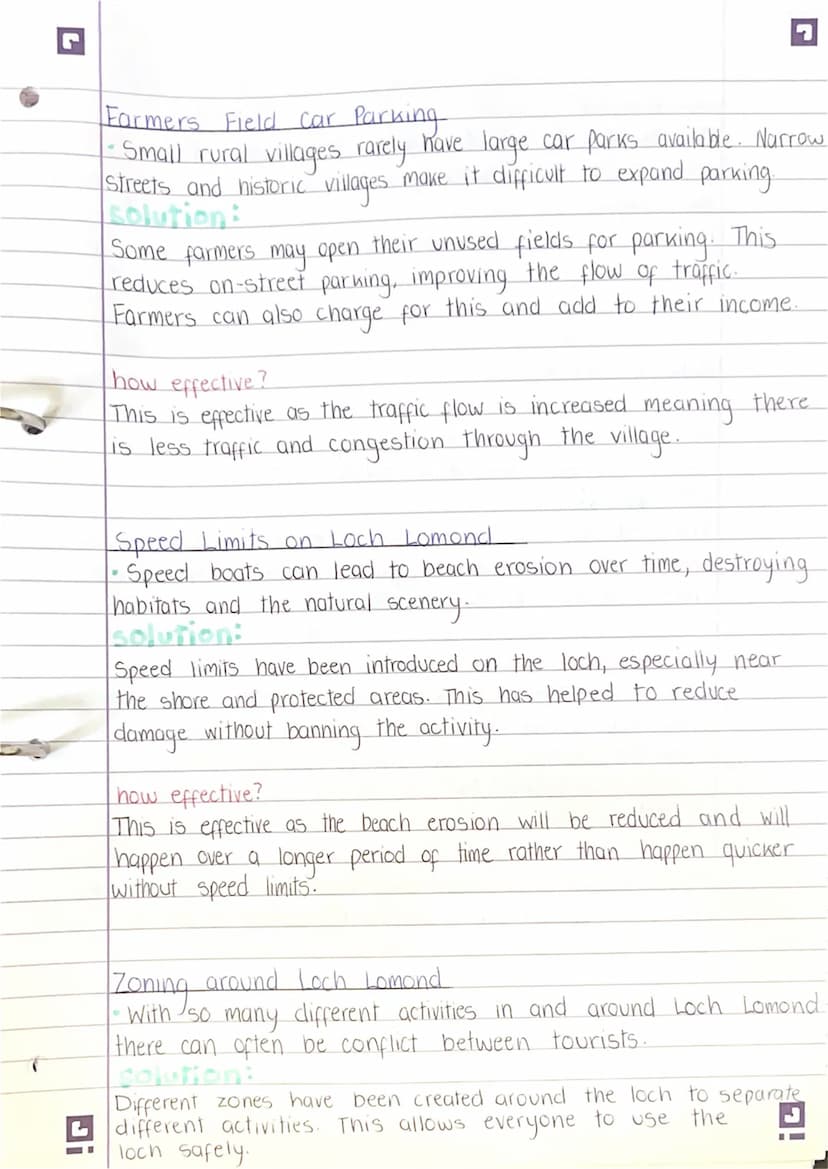 Farmers Field Car Parking
• Small rural villages rarely have large car parks available. Narrow
streets and historic villages make it difficult to expand parking.
solution:
Some farmers may open their unused fields for parking. This
reduces on-street parking, improving the flow of traffic.
Farmers can also charge for this and add to their income.
how effective?
This is effective as the traffic flow is increased meaning there
is less traffic and congestion through the village.
Speed Limits on Loch Lomond
• Speed boats can lead to beach erosion over time, destroying
habitats and the natural scenery.
solution:
Speed limits have been introduced on the loch, especially near
the shore and protected areas. This has helped to reduce
damage without banning the activity.
how effective?
This is effective as the beach erosion will be reduced and will
happen over a longer period of time rather than happen quicker
without speed limits.
Zoning around Loch Lomond
• With so many different activities in and around Loch Lomond
there can often be conflict between tourists.
solution:
Different zones have been created around the loch to separate
different activities. This allows everyone to use the
loch safely.